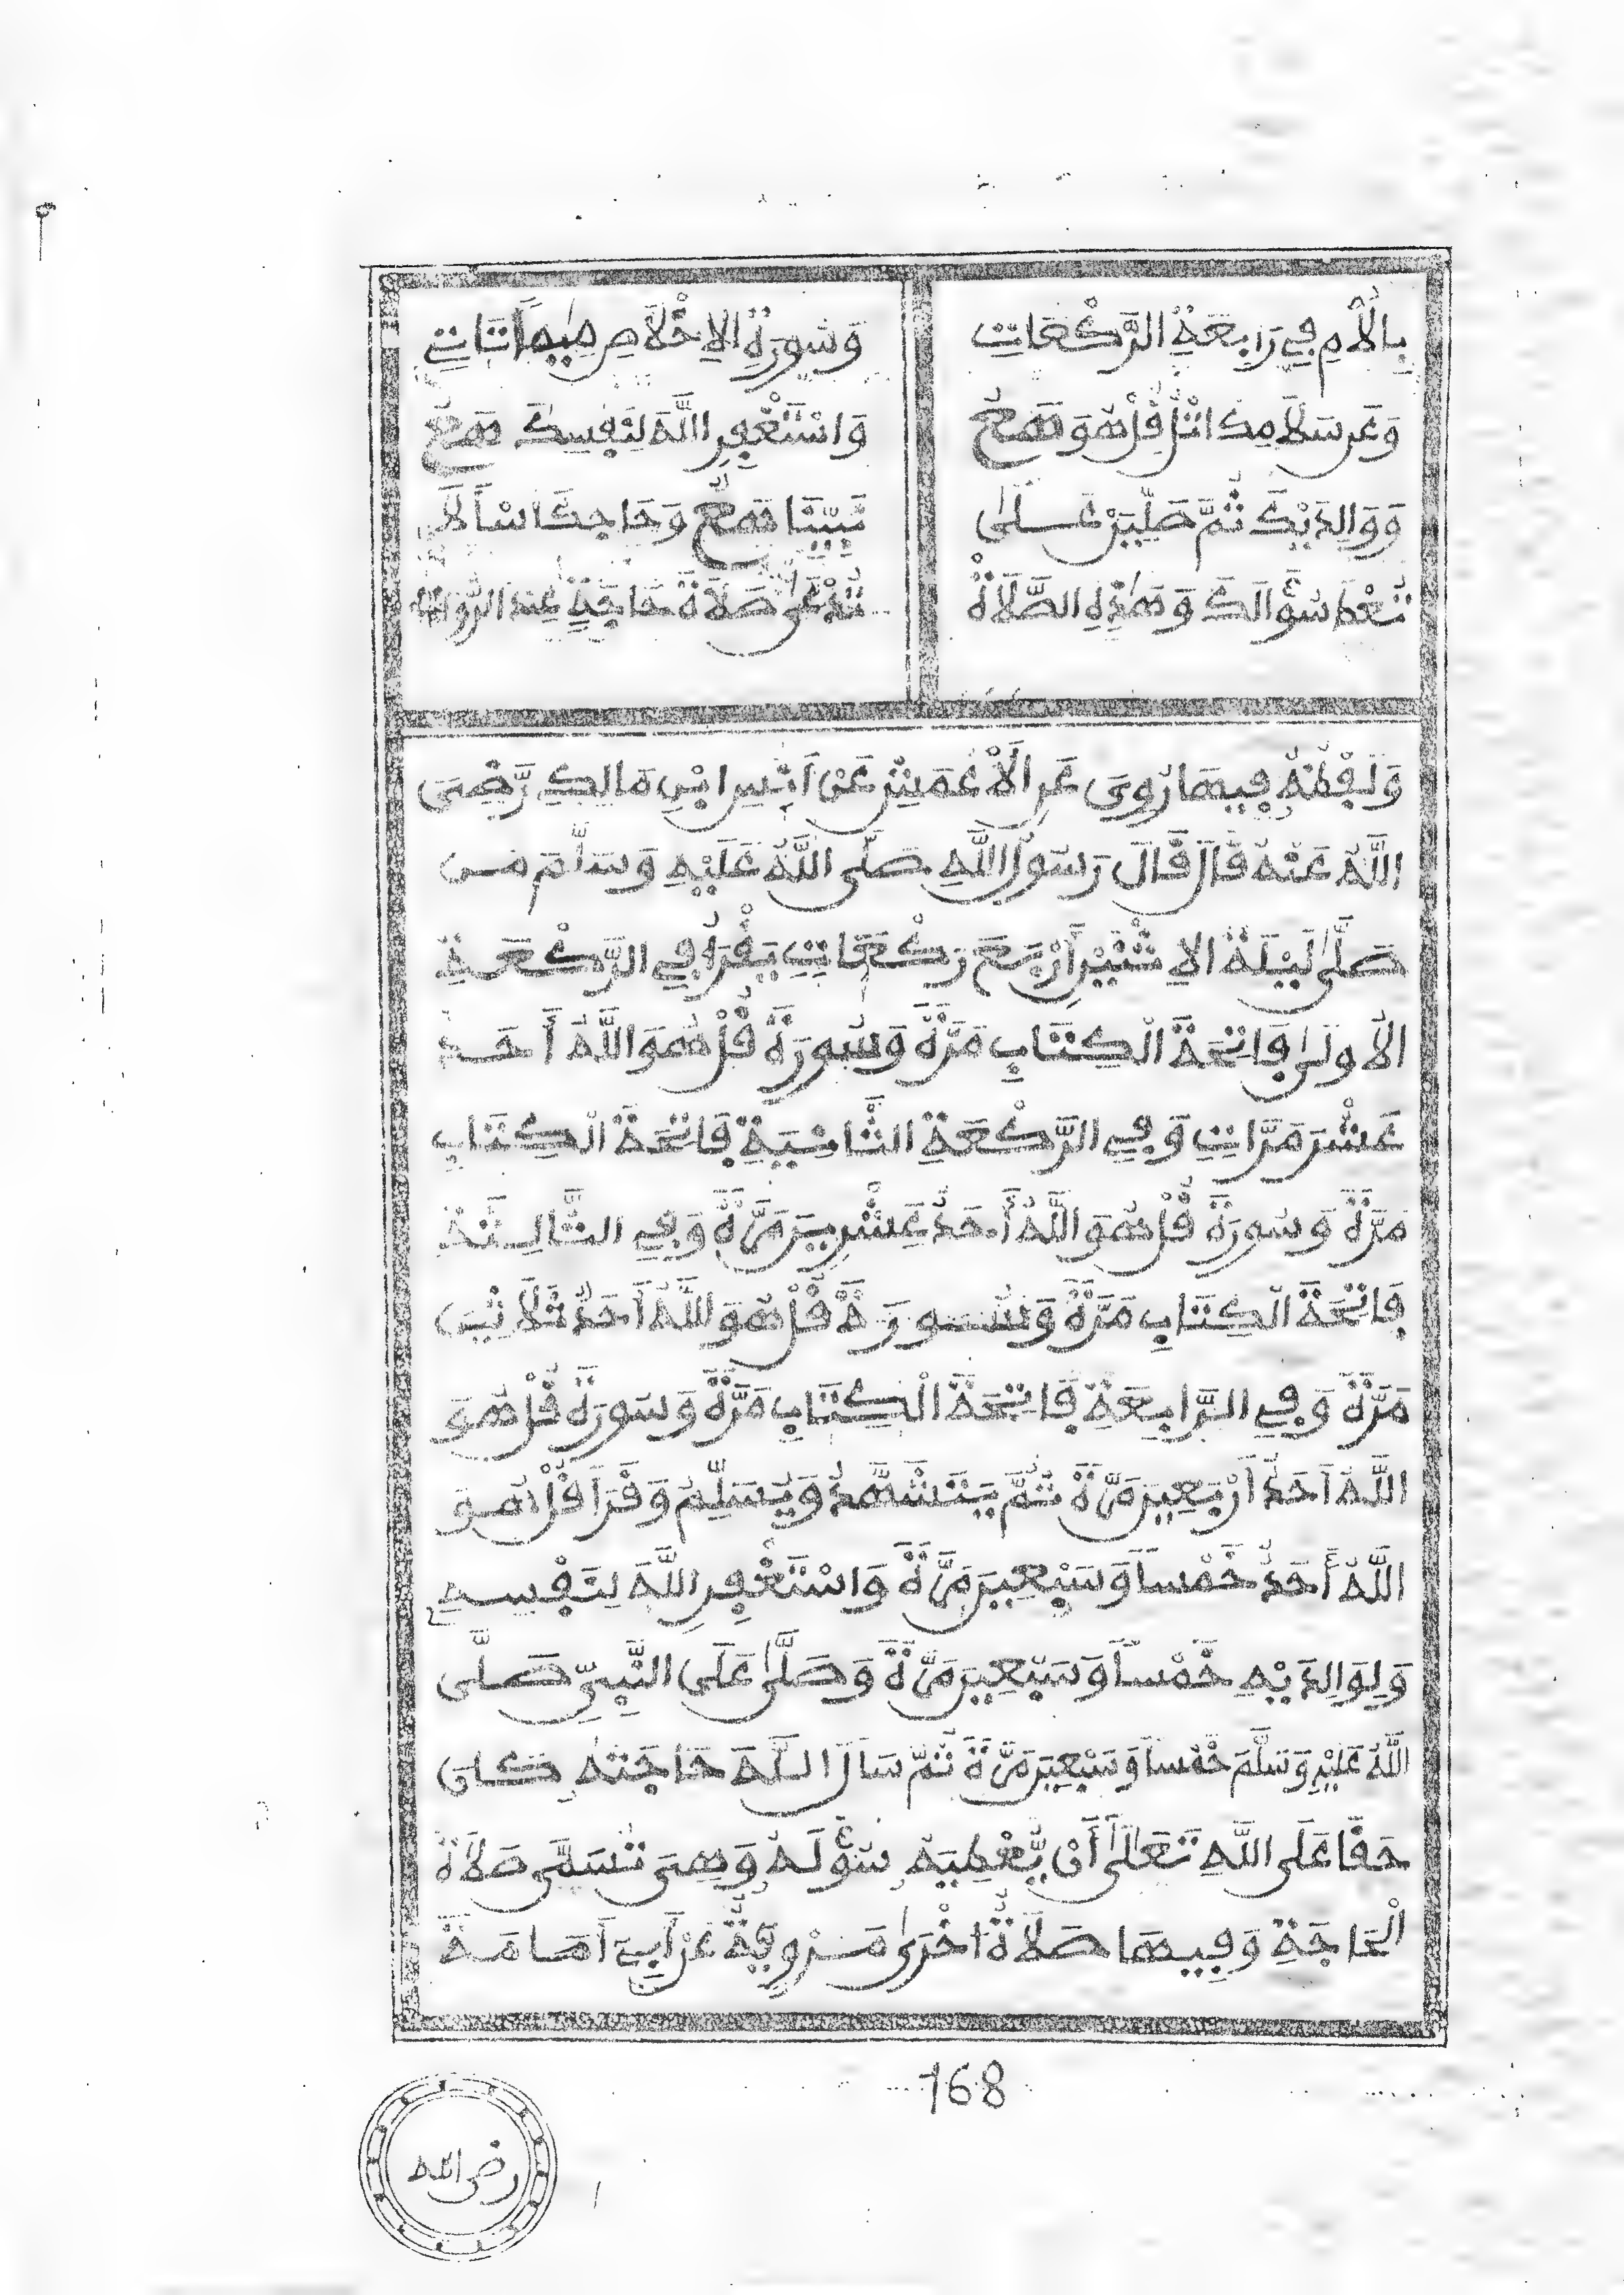 بِالْأُمِّ فِي رَابِعَةِ الرَّكْعَاتِ وَسُورَةِ الِاخْلَاصِ مِيمًا تَاتِي
وَعَن سَلَامِكَ اتْلُ قُلْ هُوَ هَمَعْ وَاسْتَغْفِرِ اللَّهَ لِنَفْسِكَ هَمَعْ
وَوَالِدَيْكَ ثُمَّ صَلِّيَنْ عَلَى نَبِيِّنَا هَمَعْ وَحَاجَكَ اسْأَلَا
تُعْطَ سُؤَالَكَ وَهَذِهِ الصَّلَاةْ تُدْعَى صَلَاةَ حَاجَةٍ عِنْدَ الرُّوَاةْ
وَلَفْظُهُ فِيمَا رُوِيَ عَنِ الْأَعْمَشِ عَنْ أَنَسِ ابْنِ مَالِكٍ رَّضِيَ
اللَّهُ عَنْهُ قَالَ قَالَ رَسُولُ اللَّهِ صَلَّى اللَّهُ عَلَيْهِ وَسَلَّمَ مَن
صَلَّى لَيْلَةَ الِاثْنَيْنِ أَرْبَعَ رَكْعَاتٍ يَقْرَأُ فِي الرَّكْعَةِ
الْأُولَى فَاتِحَةَ الْكِتَابِ مَرَّةً وَسُورَةَ قُلْ هُوَ اللَّهُ أَحَدٌ
عَشْرَ مَرَّاتٍ وَفِي الرَّكْعَةِ الثَّانِيَةِ فَاتِحَةَ الْكِتَابِ
مَرَّةً وَسُورَةَ قُلْ هُوَ اللَّهُ أَحَدٌ عِشْرِينَ مَرَّةً وَفِي الثَّالِثَةِ
فَاتِحَةَ الْكِتَابِ مَرَّةً وَسُورَةَ قُلْ هُوَ اللَّهُ أَحَدٌ ثَلَاثِينَ
مَرَّةً وَفِي الرَّابِعَةِ فَاتِحَةَ الْكِتَابِ مَرَّةً وَسُورَةَ قُلْ هُوَ
اللَّهُ أَحَدٌ أَرْبَعِينَ مَرَّةً ثُمَّ يَتَشَهَّدُ وَيُسَلِّمُ وَقَرَأَ قُلْ هُوَ
اللَّهُ أَحَدٌ خَمْسًا وَسَبْعِينَ مَرَّةً وَاسْتَغْفِرِ اللَّهَ لِنَفْسِهِ
وَلِوَالِدَيْهِ خَمْسًا وَسَبْعِينَ مَرَّةً وَصَلَّى عَلَى النَّبِيِّ صَلَّى
اللَّهُ عَلَيْهِ وَسَلَّمَ خَمْسًا وَسَبْعِينَ مَرَّةً ثُمَّ سَأَلَ اللَّهَ حَاجَتَهُ كَانَ
حَقًّا عَلَى اللَّهِ تَعَالَى أَنْ يُّعْطِيَهُ سُؤْلَهُ وَهِيَ تُسَمَّى صَلَاةَ
الْحَاجَةِ وَفِيهَا صَلَاةٌ أُخْرَى مَرْوِيَّةٌ عَنْ أَبِي أُمَامَةَ
168
رضى الله